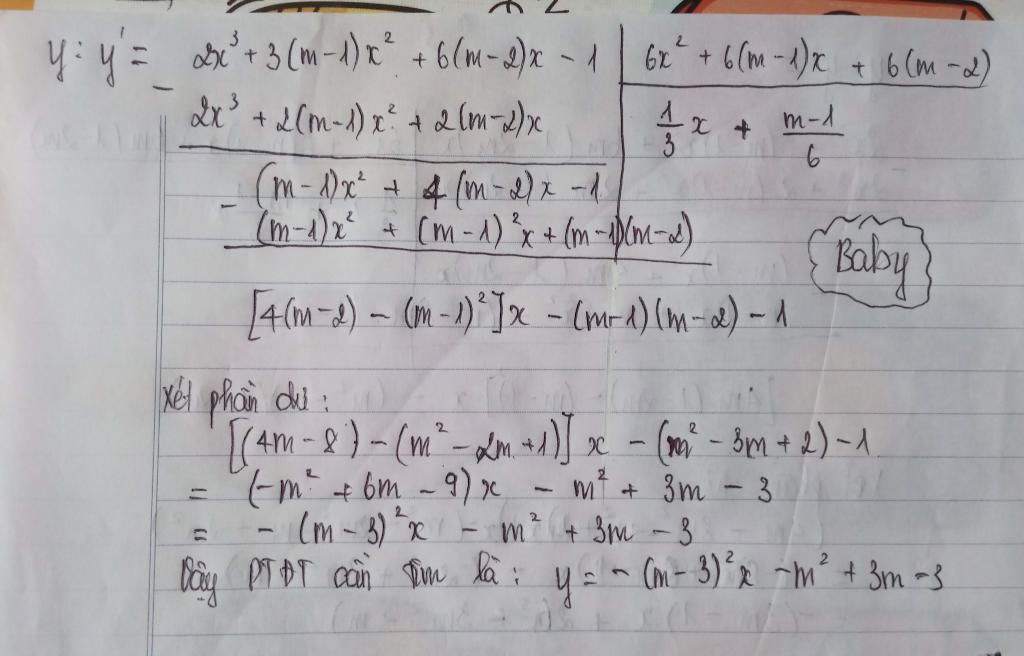 y : y' = 2x³ + 3(m-1)x² + 6(m-2)x - 1 | 6x² + 6(m-1)x + 6(m-2)
- 2x³ + 2(m-1)x² + 2(m-2)x | 1/3 x + (m-1)/6
(m-1)x² + 4(m-2)x - 1
- (m-1)x² + (m-1)²x + (m-1)(m-2)
Baby
[4(m-2) - (m-1)²]x - (m-1)(m-2) - 1
Xét phần dư :
[(4m - 8) - (m² - 2m + 1)] x - (m² - 3m + 2) - 1
= (-m² + 6m - 9)x - m² + 3m - 3
= - (m - 3)²x - m² + 3m - 3
Vậy PTĐT cần tìm là : y = - (m - 3)²x - m² + 3m - 3